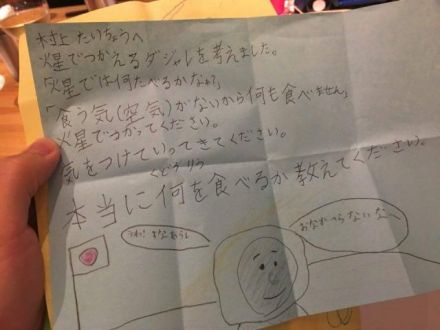 村上 たいちょうへ
火星でつかえるダジャレを考えました。
「火星では何たべるかなぁ?」
「食う気(空気)がないから何も食べません」
火星でつかってください。
気をつけていってきてください。
くどうりり
本当に何を食べるか教えてください。
おなかへらないなへ